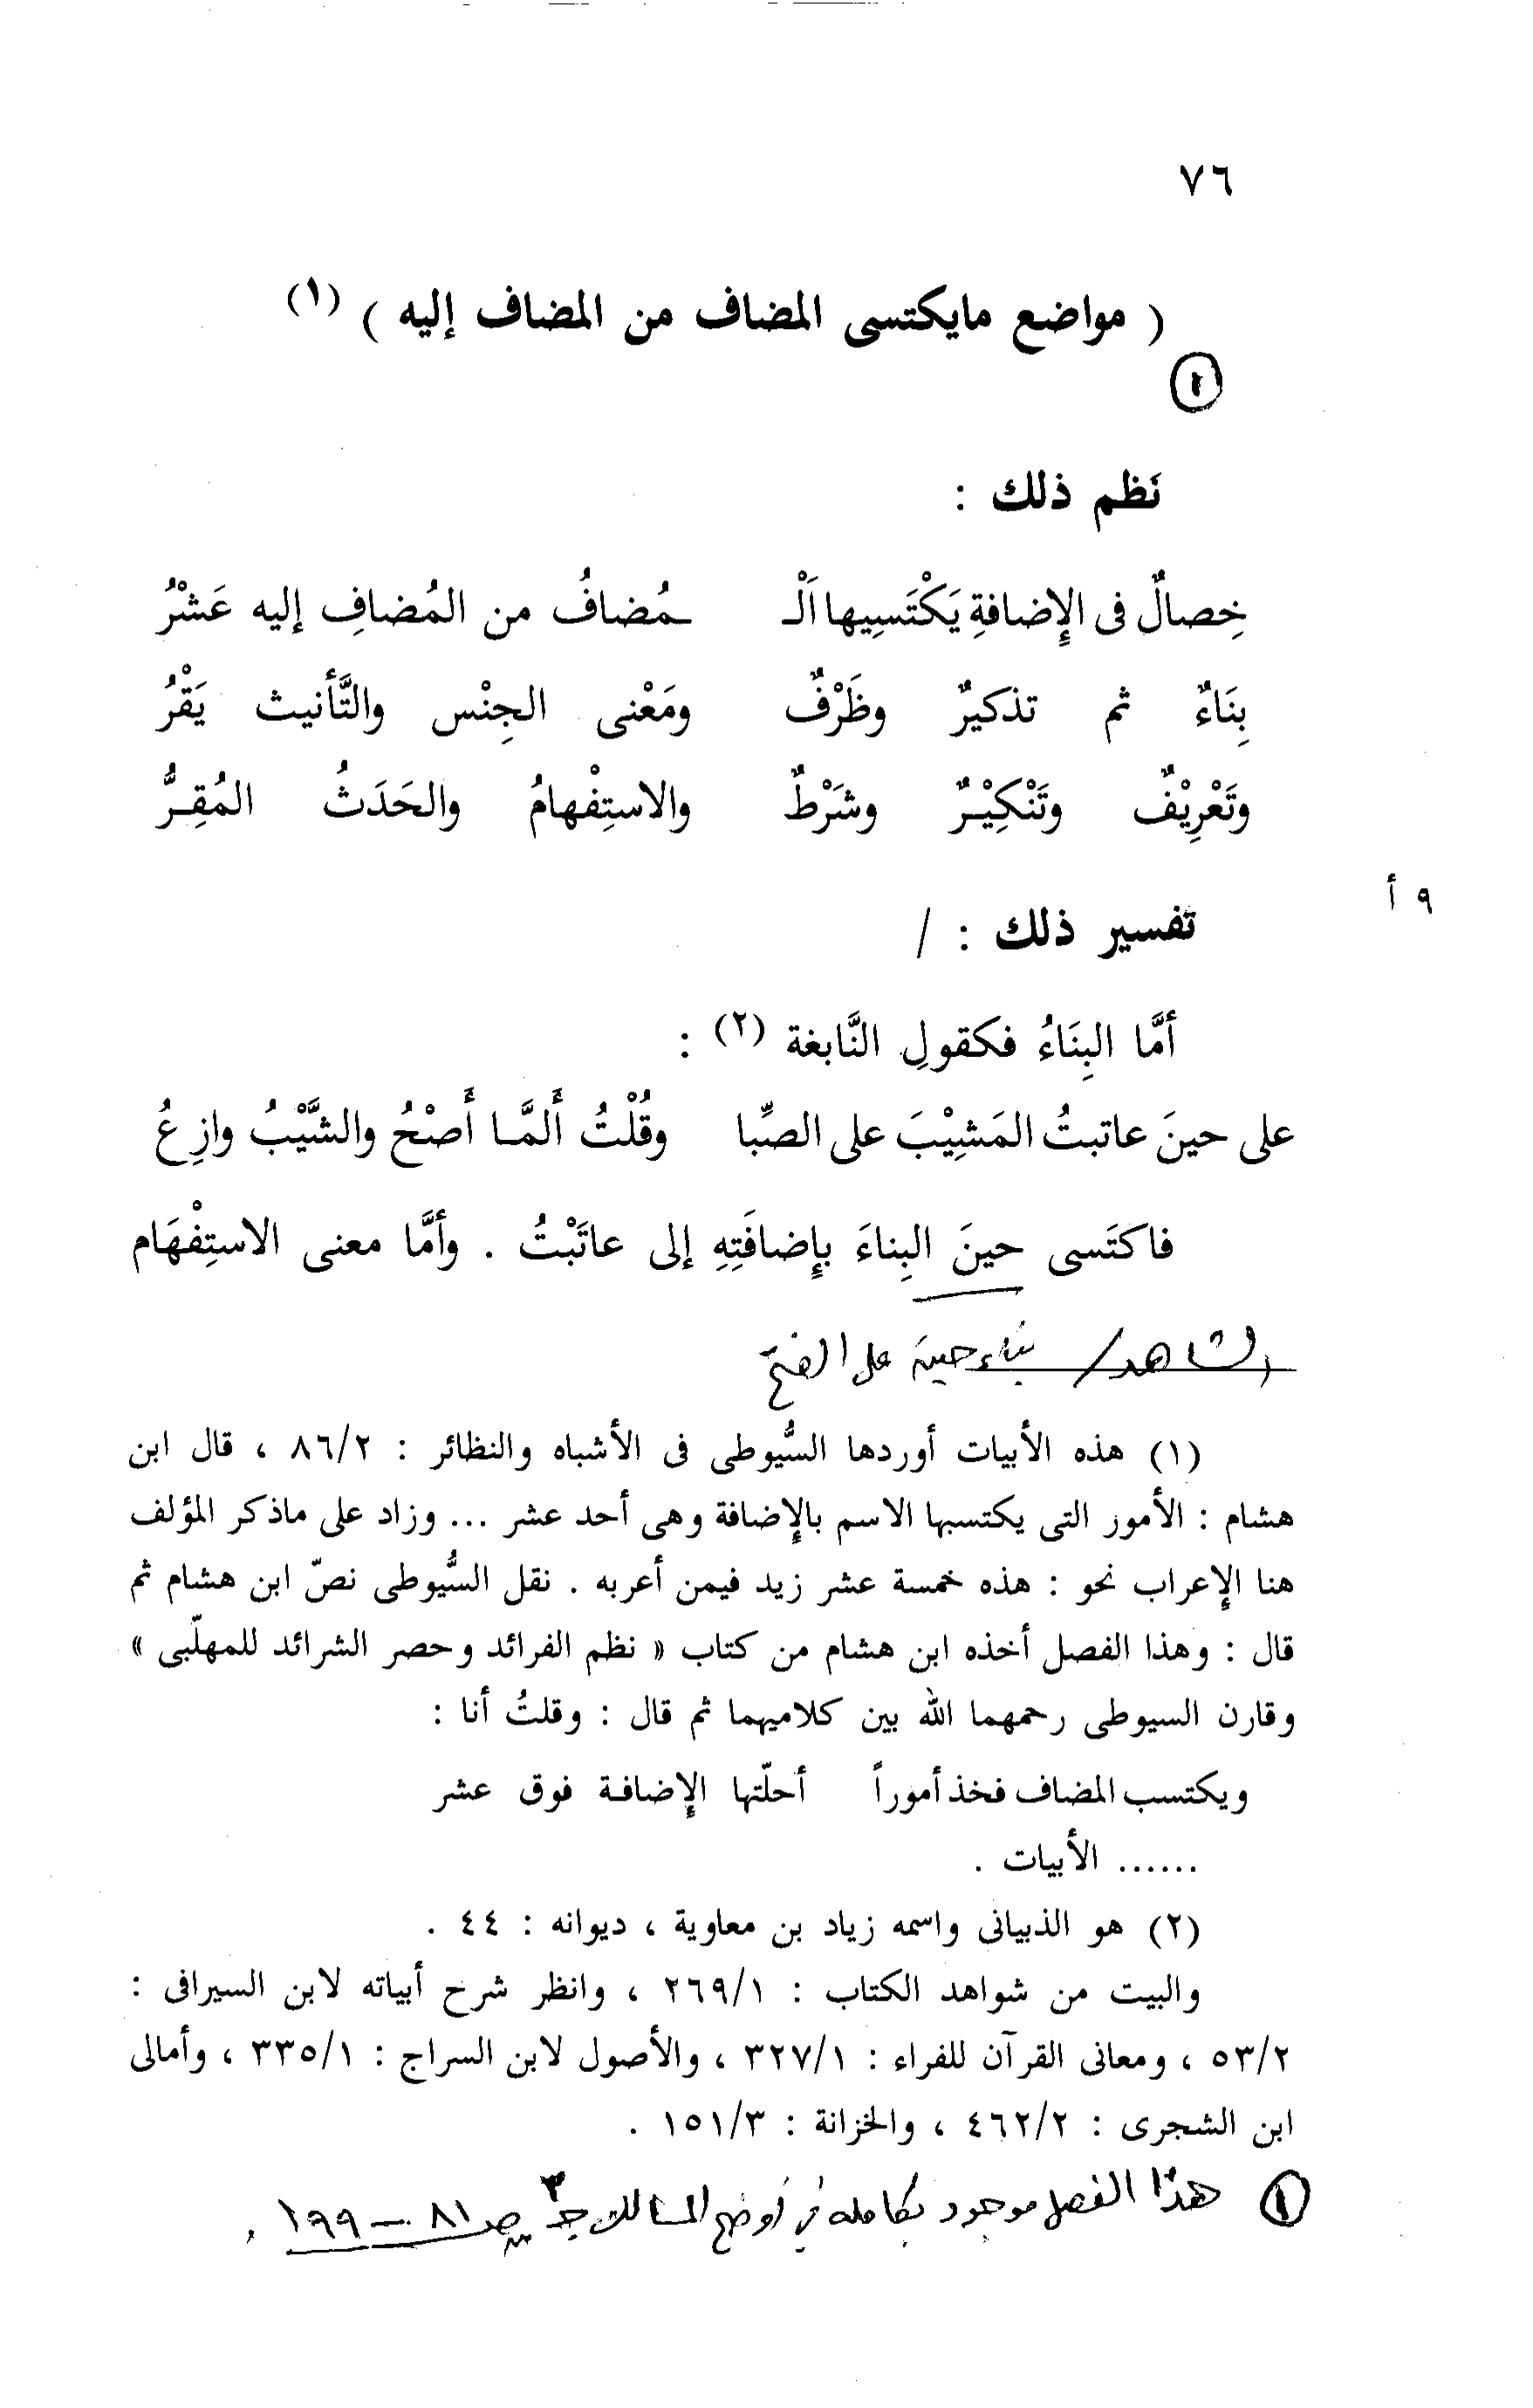 ٧٦
( مواضع مايكتسى المضاف من المضاف إليه ) (١)
١
نَظم ذلك :
خِصالٌ فى الإِضافةِ يَكْتَسِيها اَلْـ ـمُضافُ من المُضافِ إليه عَشْرُ
بِنَاءٌ ثم تذكيرٌ وظَرْفٌ ومَعْنى الجِنْس والتَّأنيث يَقْرُ
وتَعْرِيْفٌ وتَنْكِيْـرٌ وشَرْطٌ والاستِفْهامُ والحَدَثُ المُقِـرُّ
٩ أ
تفسير ذلك : /
أمَّا البِنَاءُ فكقولِ النَّابغة (٢) :
على حينَ عاتبتُ المَشِيْبَ على الصِّبا وقُلْتُ أَلمَّـا أَصْحُ والشَّيْبُ وازِعُ
فاكتَسى حينَ البِناءَ بإِضافَتِهِ إلى عاتَبْتُ . وأمَّا معنى الاستِفْهَام
الشاهد/ بناء حين على الفتح
(١) هذه الأبيات أوردها السُّيوطى فى الأشباه والنظائر : ٨٦/٢ ، قال ابن
هشام : الأمور التى يكتسبها الاسم بالإضافة وهى أحد عشر ... وزاد على ماذكر المؤلف
هنا الإعراب نحو : هذه خمسة عشر زيد فيمن أعربه . نقل السُّيوطى نصّ ابن هشام ثم
قال : وهذا الفصل أخذه ابن هشام من كتاب « نظم الفرائد وحصر الشرائد للمهلّبى »
وقارن السيوطى رحمهما الله بين كلاميهما ثم قال : وقلتُ أنا :
ويكتسب المضاف فخذ أموراً أحلّتها الإضافـة فوق عشر
...... الأبيات .
(٢) هو الذبيانى واسمه زياد بن معاوية ، ديوانه : ٤٤ .
والبيت من شواهد الكتاب : ٢٦٩/١ ، وانظر شرح أبياته لابن السيرافى :
٥٣/٢ ، ومعانى القرآن للفراء : ٣٢٧/١ ، والأصول لابن السراج : ٣٣٥/١ ، وأمالى
ابن الشجرى : ٤٦٢/٢ ، والخزانة : ١٥١/٣ .
١ هذا الفصل موجود بكامله في أوضح المسالك جـ ٣ صـ ٨١ – ١٩٩ .